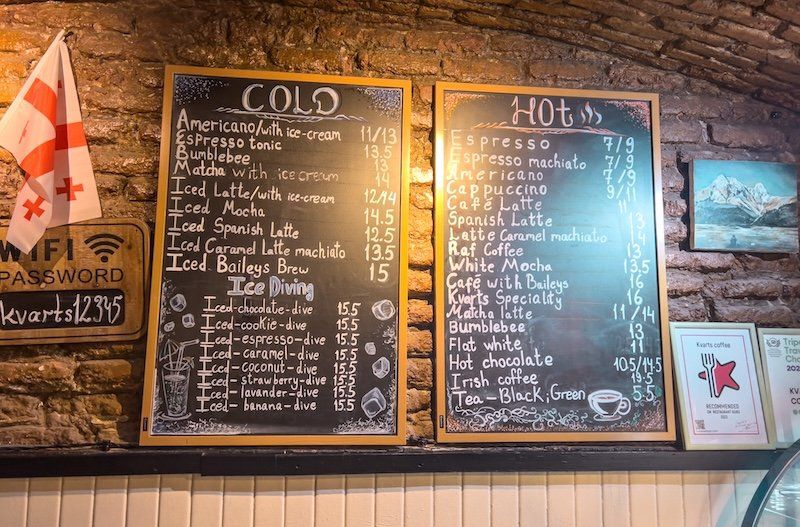 WIFI
PASSWORD
kvarts12345
COLD
Americano/with ice-cream 11/13
Espresso tonic 13.5
Bumblebee 13
Matcha with icecream 14
Iced Latte/with ice-cream 12/14
Iced Mocha 14.5
Iced Spanish Latte 12.5
Iced Caramel Latte machiato 13.5
Iced Baileys Brew 15
Ice Diving
Iced-chocolate-dive 15.5
Iced-cookie-dive 15.5
Iced-espresso-dive 15.5
Iced-caramel-dive 15.5
Iced-coconut-dive 15.5
Iced-strawberry-dive 15.5
Iced-lavander-dive 15.5
Iced-banana-dive 15.5
HOT
Espresso 7/9
Espresso machiato 7/9
Americano 7/9
Cappuccino 9/11
Café Latte 11
Spanish Latte 13
Latte Caramel machiato 14
Raf Coffee 13
White Mocha 13.5
Café with Baileys 16
Kvarts Speciality 16
Matcha latte 11/14
Bumblebee 13
Flat white 11
Hot chocolate 10.5/14.5
Irish coffee 19.5
Tea-Black, Green 5.5
Kvarts coffee
RECOMMENDED
ON RESTAURANT GURU